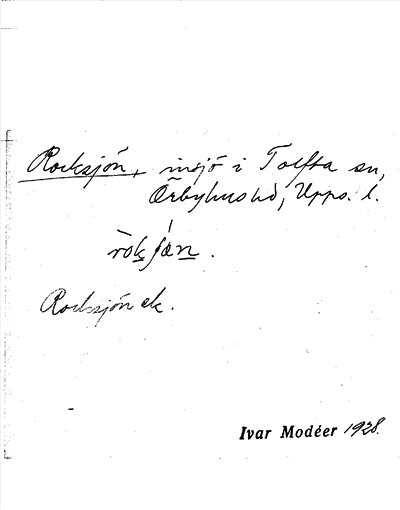 Rocksjön, insjö i Tolfta sn,
Örbyhus hd, Upps. l.
Rocksjön ek.
Ivar Modéer 1928.